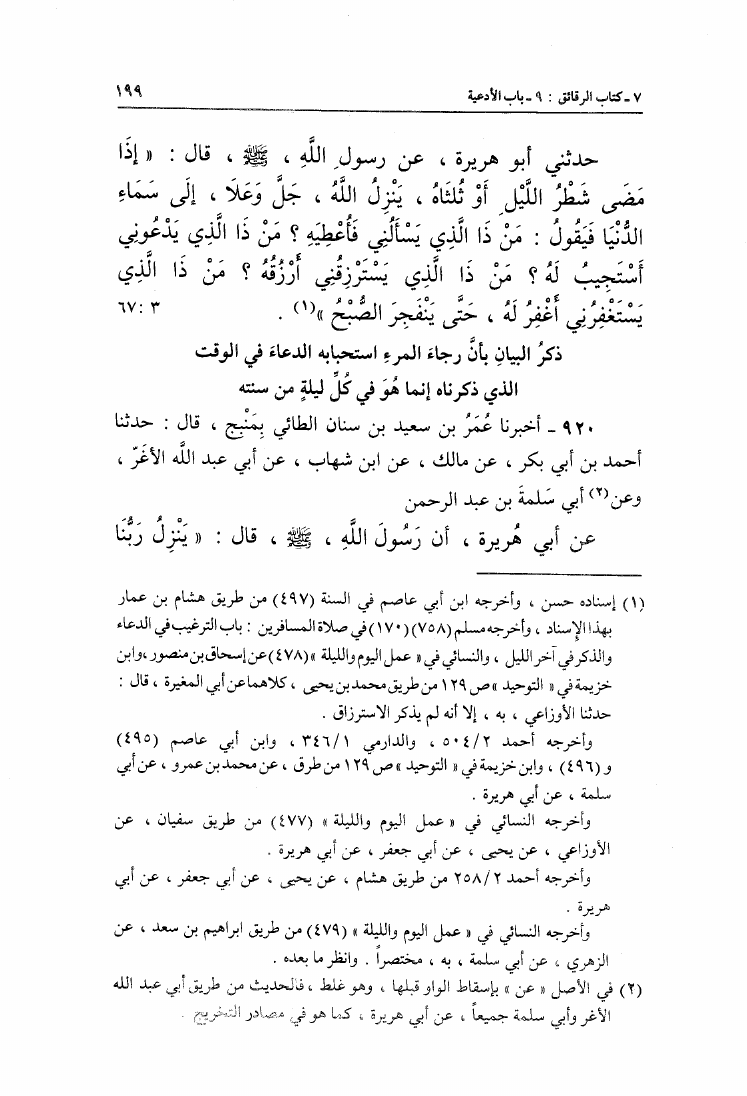 ٧ - كتاب الرقائق : ٩ - باب الأدعية ١٩٩
حدثني أبو هريرة ، عن رسول اللَّهِ ، ﷺ ، قال : « إِذَا
مَضَى شَطْرُ اللَّيْلِ أَوْ ثُلثَاهُ ، يَنْزِلُ اللَّهُ ، جَلَّ وَعَلَا ، إِلَى سَمَاءِ
الدُّنْيَا فَيَقُولُ : مَنْ ذَا الَّذِي يَسْأَلُنِي فَأُعْطِيَهِ ؟ مَنْ ذَا الَّذِي يَدْعُونِي
أَسْتَجِيبُ لَهُ ؟ مَنْ ذَا الَّذِي يَسْتَرْزِقُنِي أَرْزُقُهُ ؟ مَنْ ذَا الَّذِي
يَسْتَغْفِرُنِي أَغْفِرُ لَهُ ، حَتَّى يَنْفَجِرَ الصُّبْحُ »(١) . ٣ :٦٧
ذكرُ البيانِ بأنَّ رجاءَ المرءِ استحبابه الدعاءَ في الوقت
الذي ذكرناه إنما هُوَ في كُلِّ ليلةٍ من سنته
٩٢٠ - أخبرنا عُمَرُ بن سعيد بن سنان الطائي بِمَنْبِج ، قال : حدثنا
أحمد بن أبي بكر ، عن مالك ، عن ابن شهاب ، عن أبي عبد اللَّه الأغَرّ ،
وعن(٢) أبي سَلمةَ بن عبد الرحمن
عن أبي هُريرة ، أن رَسُولَ اللَّهِ ، ﷺ ، قال : « يَنْزِلُ رَبُّنَا
(١) إسناده حسن ، وأخرجه ابن أبي عاصم في السنة (٤٩٧) من طريق هشام بن عمار
بهذا الإسناد ، وأخرجه مسلم (٧٥٨) (١٧٠) في صلاة المسافرين : باب الترغيب في الدعاء
والذكر في آخر الليل ، والنسائي في « عمل اليوم والليلة » (٤٧٨) عن إسحاق بن منصور ، وابن
خزيمة في « التوحيد » ص ١٢٩ من طريق محمد بن يحيى ، كلاهما عن أبي المغيرة ، قال :
حدثنا الأوزاعي ، به ، إلا أنه لم يذكر الاسترزاق .
وأخرجه أحمد ٥٠٤/٢ ، والدارمي ٣٤٦/١ ، وابن أبي عاصم (٤٩٥)
و (٤٩٦) ، وابن خزيمة في « التوحيد » ص ١٢٩ من طرق ، عن محمد بن عمرو ، عن أبي
سلمة ، عن أبي هريرة .
وأخرجه النسائي في « عمل اليوم والليلة » (٤٧٧) من طريق سفيان ، عن
الأوزاعي ، عن يحيى ، عن أبي جعفر ، عن أبي هريرة .
وأخرجه أحمد ٢٥٨/٢ من طريق هشام ، عن يحيى ، عن أبي جعفر ، عن أبي
هريرة .
وأخرجه النسائي في « عمل اليوم والليلة » (٤٧٩) من طريق ابراهيم بن سعد ، عن
الزهري ، عن أبي سلمة ، به ، مختصراً . وانظر ما بعده .
(٢) في الأصل « عن » بإسقاط الواو قبلها ، وهو غلط ، فالحديث من طريق أبي عبد الله
الأغر وأبي سلمة جميعاً ، عن أبي هريرة ، كما هو في مصادر التخريج .